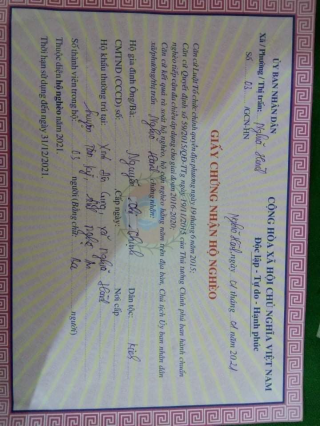 ỦY BAN NHÂN DÂN
Xã/Phường/Thị trấn: Nghĩa Hoàn
Số: 03 /GCN-HN
CỘNG HÒA XÃ HỘI CHỦ NGHĨA VIỆT NAM
Độc lập - Tự do - Hạnh phúc
Nghĩa Hoàn, ngày 01 tháng 01 năm 2021
GIẤY CHỨNG NHẬN HỘ NGHÈO
Căn cứ Luật Tổ chức chính quyền địa phương ngày 19 tháng 6 năm 2015;
Căn cứ Quyết định số 59/2015/QĐ-TTg ngày 19/11/2015 của Thủ tướng Chính phủ ban hành chuẩn
nghèo tiếp cận đa chiều áp dụng cho giai đoạn 2016-2020;
Căn cứ kết quả rà soát hộ nghèo, hộ cận nghèo hằng năm trên địa bàn, Chủ tịch Ủy ban nhân dân
xã/phường/thị trấn Nghĩa Hoàn chứng nhận:
Hộ gia đình Ông/Bà: Nguyễn Dân tộc: Kinh
CMTND (CCCD) số: Cấp ngày: Nơi cấp
Hộ khẩu thường trú tại: xã Nghĩa Hoàn
huyện Tân Kỳ, tỉnh Nghệ An
Số thành viên trong hộ: 03 người (Bằng chữ: ba người)
Thuộc diện hộ nghèo năm 2021.
Thời hạn sử dụng đến ngày 31/12/2021.